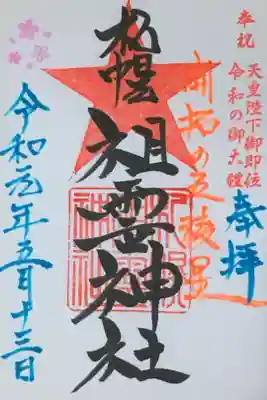 奉祝 天皇陛下御即位
令和の御大禮
奉拝
開拓の五稜星
札幌祖霊神社
令和元年五月十三日